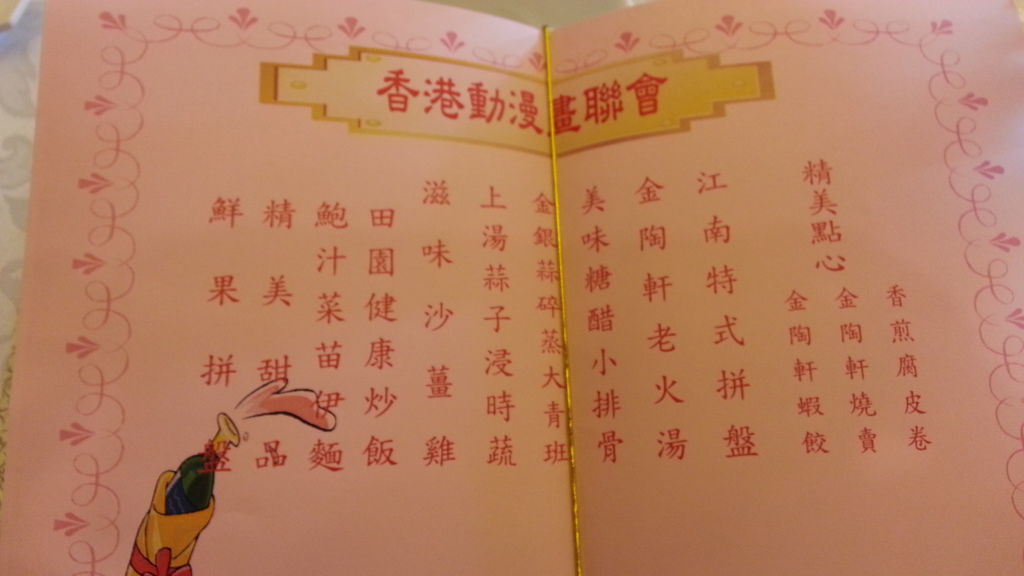 香港動漫畫聯會
精美點心
香煎腐皮卷
金陶軒燒賣
金陶軒蝦餃
江南特式拼盤
金陶軒老火湯
美味糖醋小排骨
金銀蒜碎蒸大青班
上湯蒜子浸時蔬
滋味沙薑雞
田園健康炒飯
鮑汁菜苗伊麵
精美甜品
鮮果拼盤